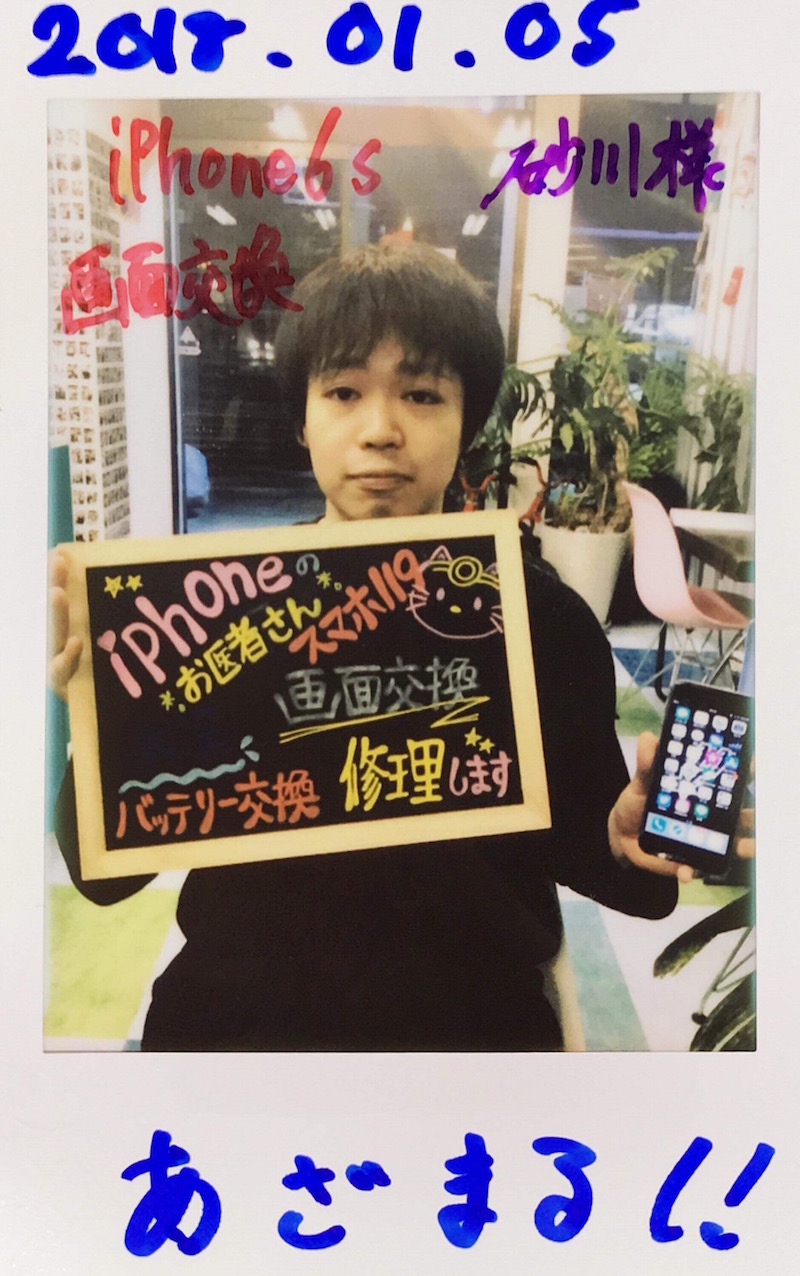 2018.01.05
iPhone6s
砂川様
画面交換
iPhoneの
お医者さん
スマホ119
画面交換
バッテリー交換
修理します
あざまる!!